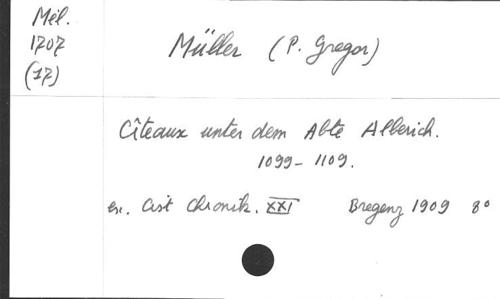 Mél.
1707
(17)
Müller (P. Gregor)
Cîteaux unter dem Abte Alberich.
1099-1109.
ex. Cist Chronik. XXI Bregenz 1909 8°